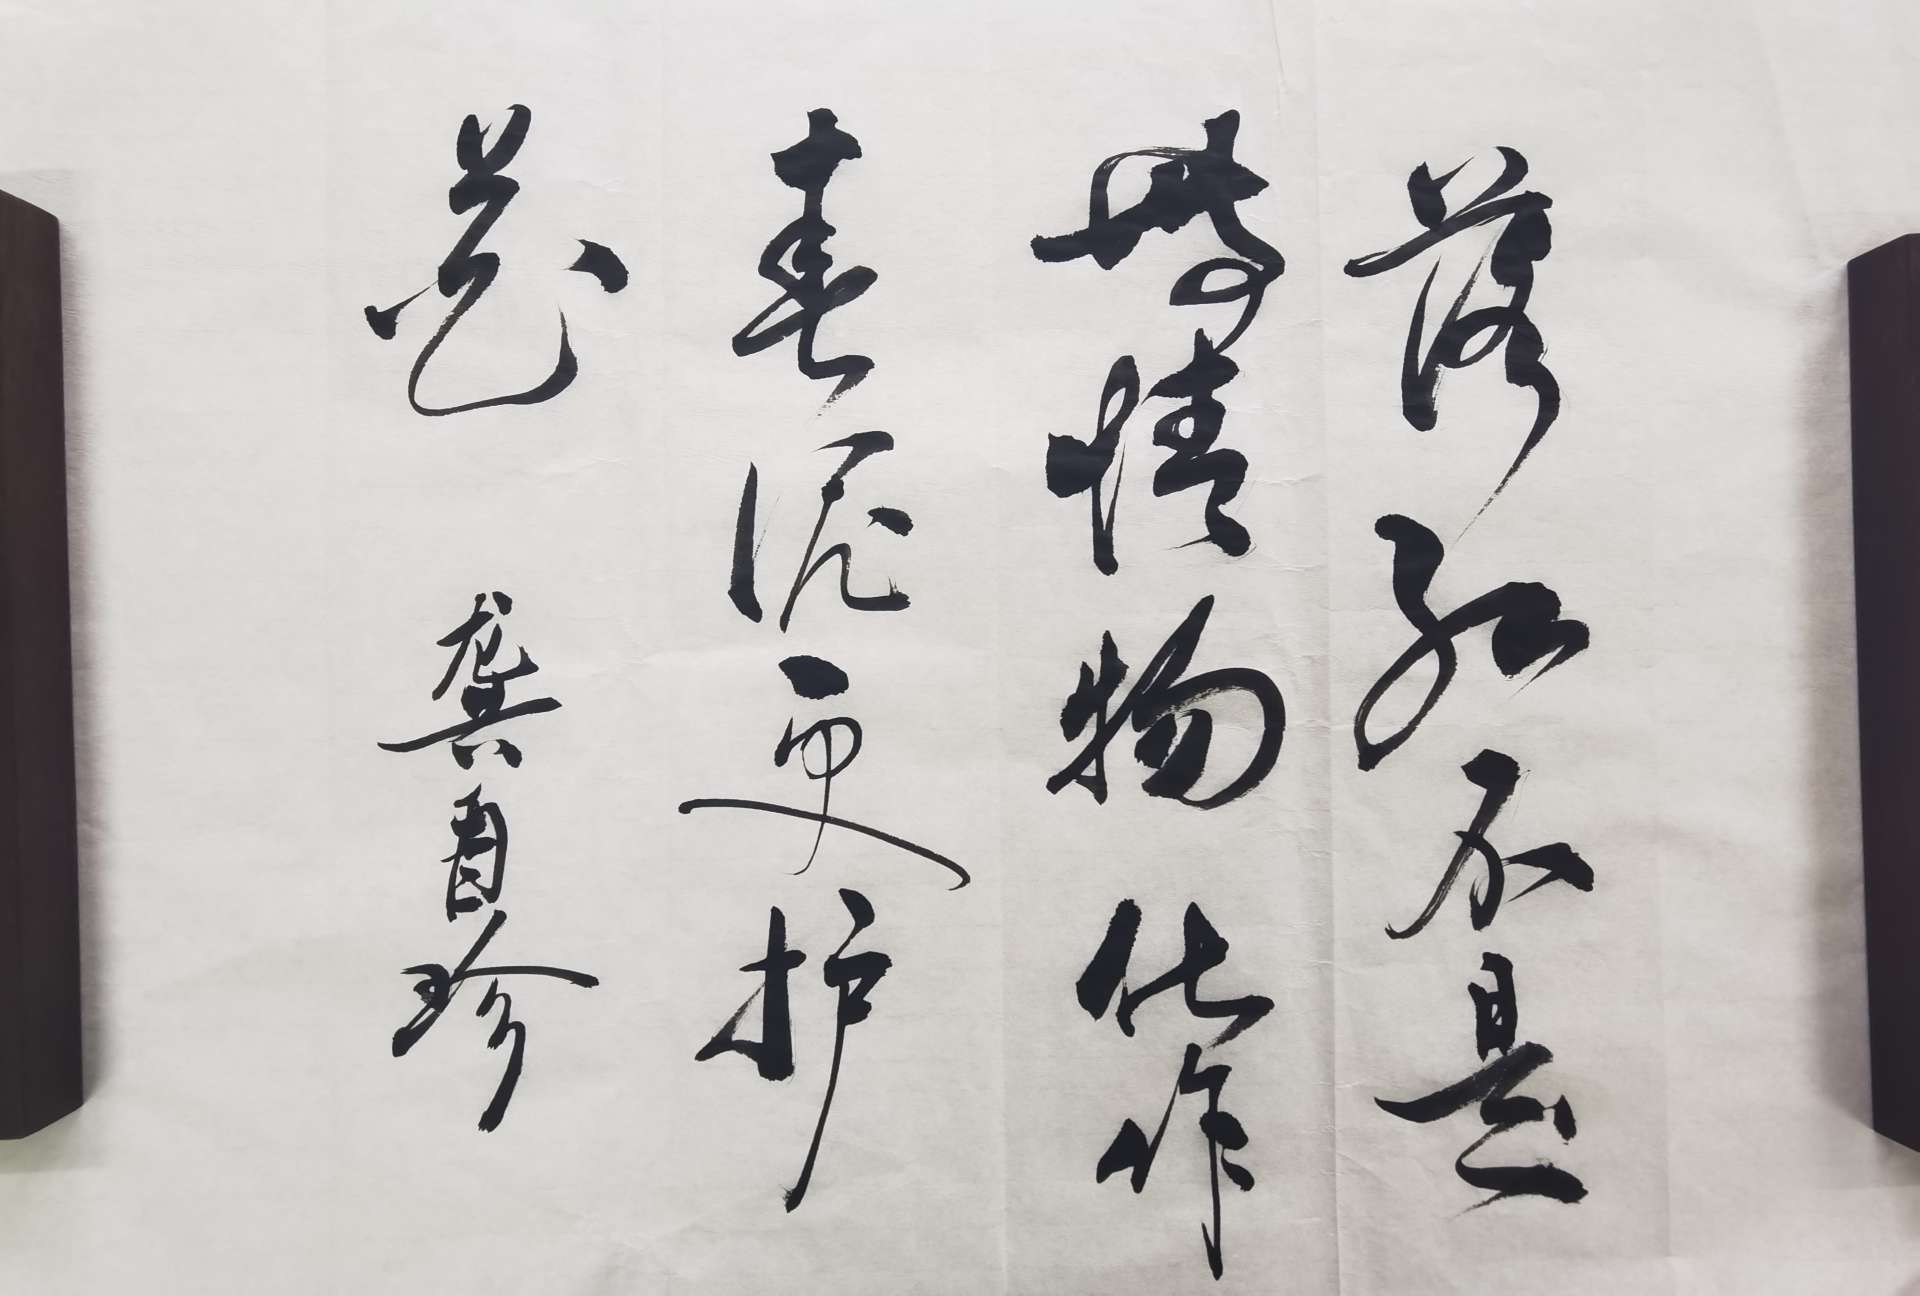 落红不是
無情物化作
春泥更护
花 龚自珍